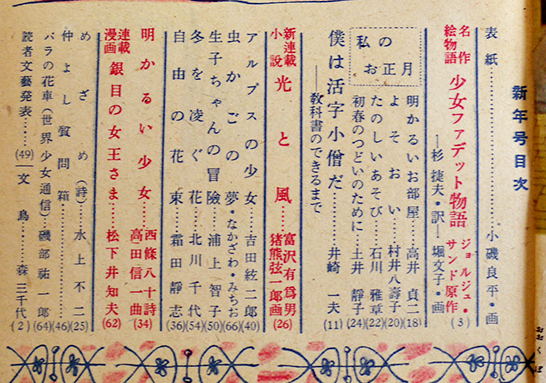 新年号目次
表紙……小磯良平・画
名作絵物語 少女ファデット物語 ジョルジュ・サンド原作 (3)
――杉捷夫・訳――堀文子・画
私のお正月
明かるいお部屋……高井貞二 (18)
よそおい……村井八寿子 (20)
たのしいあそび……石川雅章 (22)
初春のつどいのために……土井静子 (24)
僕は活字小僧だ……井崎一夫 (11)
――教科書のできるまで
新連載小説 光と風……富沢有為男 猪熊弦一郎画 (26)
アルプスの少女……吉田絃二郎 (40)
虫かごの夢……なかざわ・みちお (66)
生子ちゃんの冒険……浦上智子 (50)
冬を凌ぐ花……北川千代 (54)
自由の花束……霜田静志 (36)
明かるい少女……西條八十詩 高田信一曲 (34)
連載漫画 銀目の女王さま……松下井知夫 (62)
めざめ(詩)……水上不二 (25)
仲よし質問箱…… (46)
バラの花車(世界少女通信)……磯部祐一郎 (64)
読者文藝発表……(49) 文鳥……森三千代 (2)
おくば